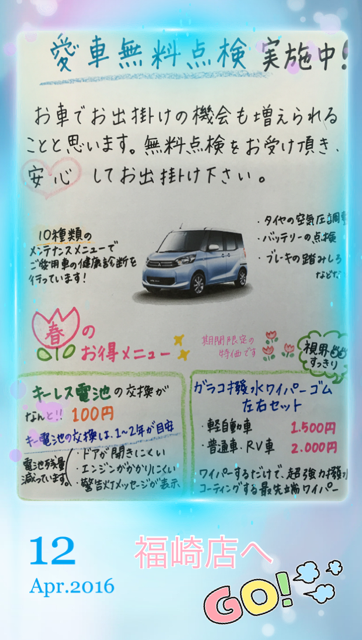 愛車無料点検 実施中!
お車でお出掛けの機会も増えられる
ことと思います。無料点検をお受け頂き、
安心してお出掛け下さい。
10種類の
メンテナンスメニューで
ご愛用車の健康診断を
行っています!
・タイヤの空気圧調整
・バッテリーの点検
・ブレーキの踏みしろ
などなど
春の
お得メニュー
期間限定の
特価です
視界
すっきり
キーレス電池の交換が
なんと!! 100円
キー電池の交換は、1~2年が目安
電池が残量
減っています。
・ドアが開きにくい
・エンジンがかかりにくい
・警告灯メッセージが表示
ガラコ撥水ワイパーゴム
左右セット
・軽自動車 1.500円
・普通車・RV車 2.000円
ワイパーするだけで、超強力撥水
コーティングする最先端ワイパー
12
Apr.2016
福崎店へ
GO!